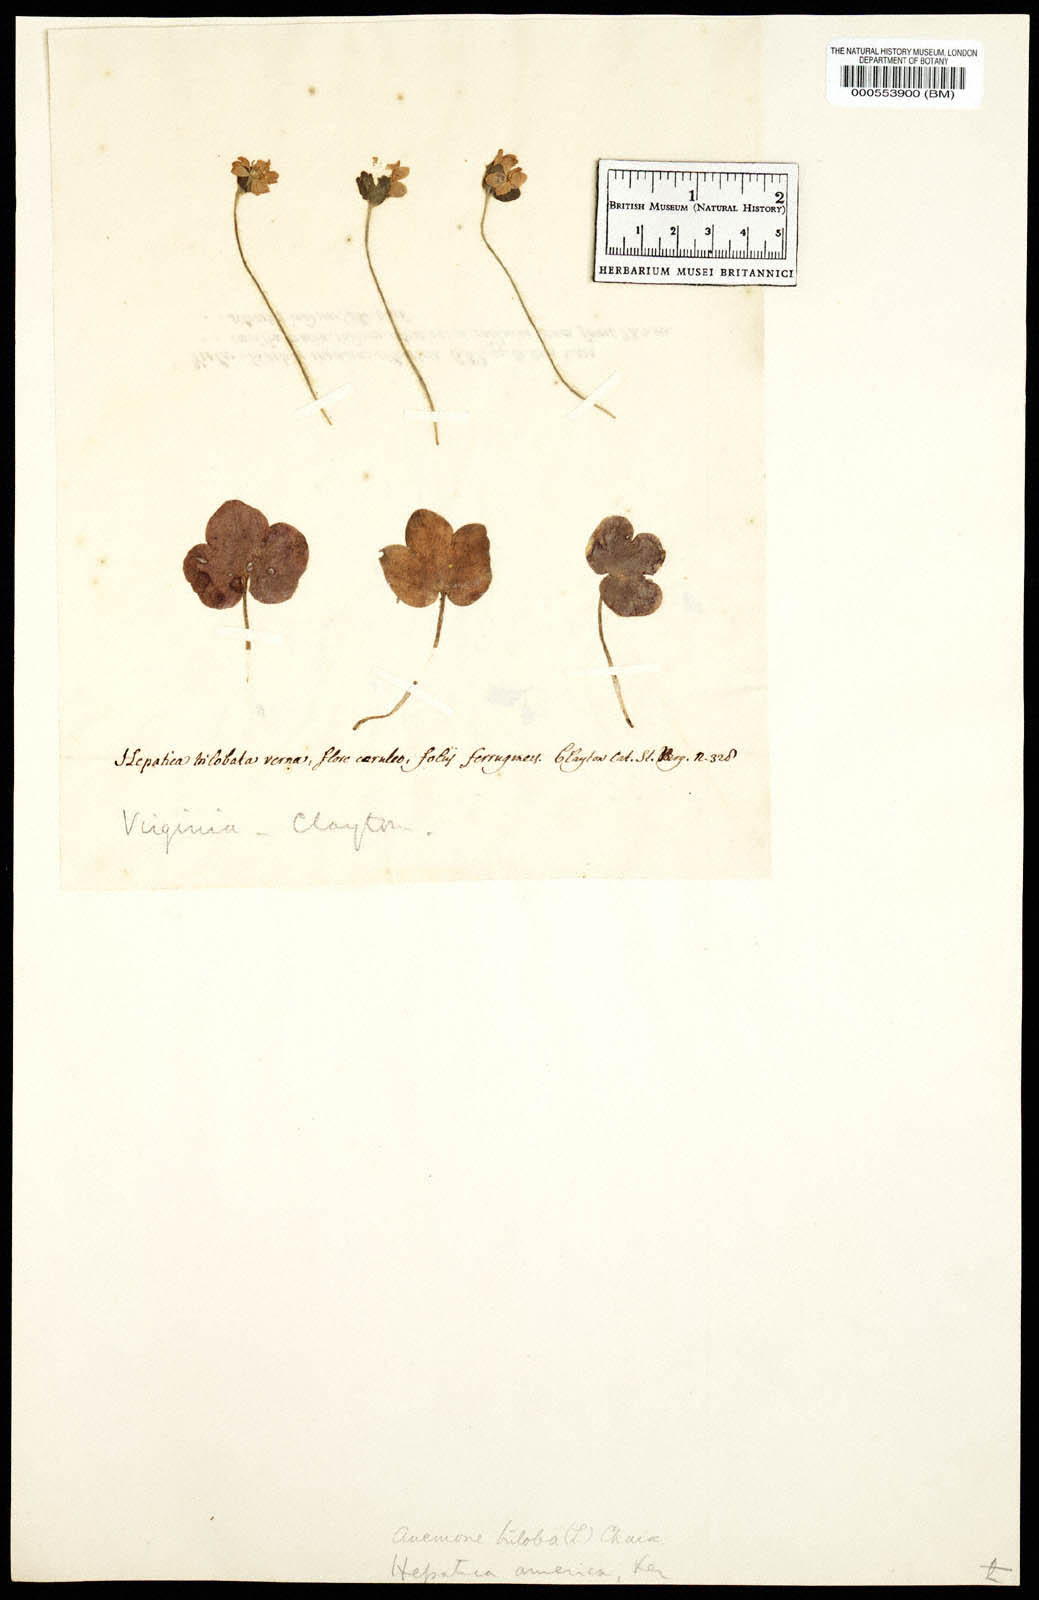 THE NATURAL HISTORY MUSEUM, LONDON
DEPARTMENT OF BOTANY
000553900 (BM)
1 2
BRITISH MUSEUM (NATURAL HISTORY)
1 2 3 4 5
HERBARIUM MUSEI BRITANNICI
Hepatica trilobata verna, flore cæruleo, foliis ferrugineis. Clayton Cat. St. Virg. n. 328
Virginia - Clayton.
Anemone triloba (L) Chaix
Hepatica america, Ker